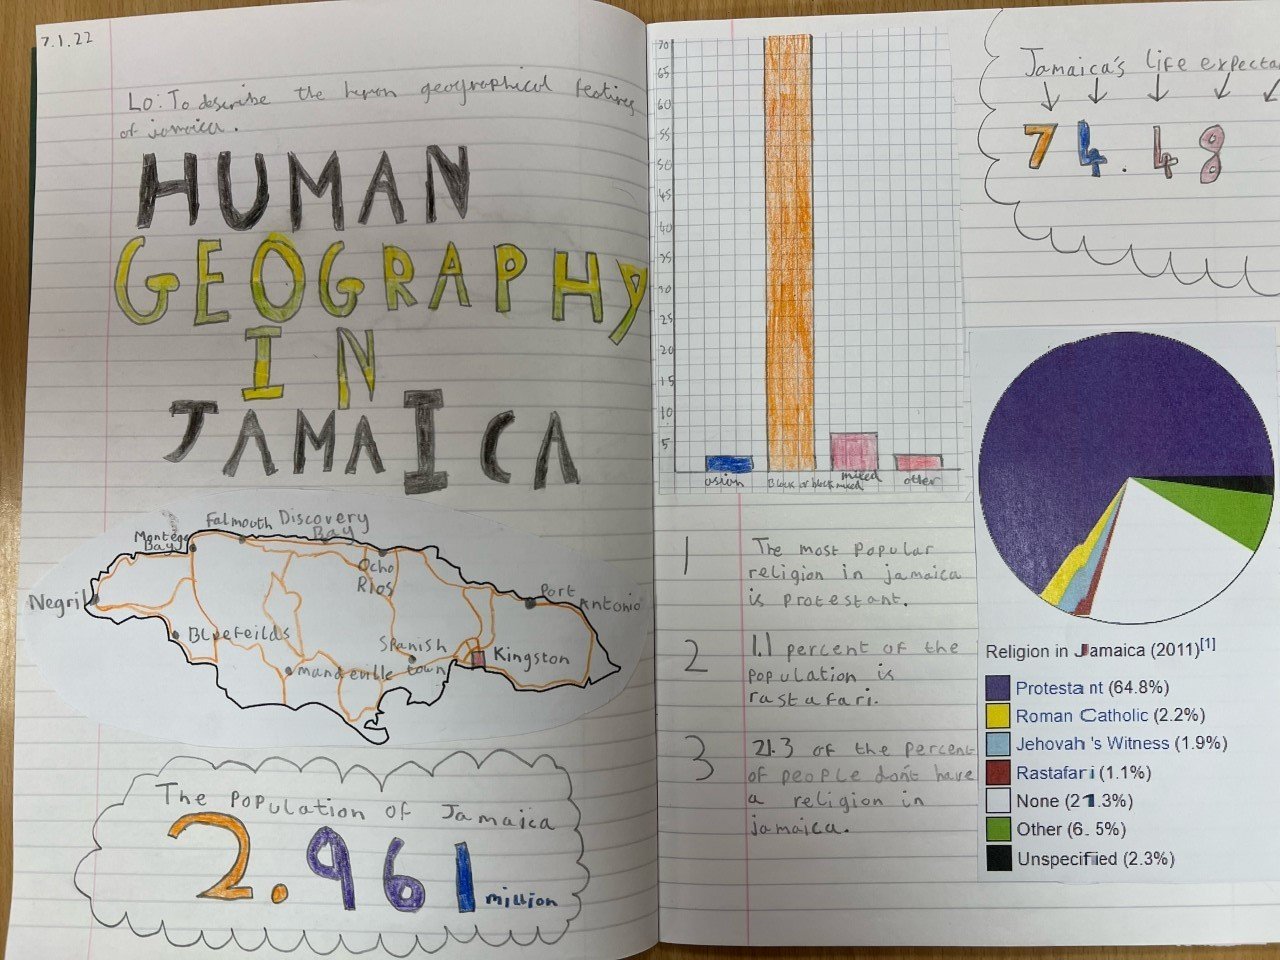 7.1.22
LO: To describe the human geographical features
of jamaica.
HUMAN
GEOGRAPHY
IN
JAMAICA
Falmouth
Discovery
Bay
Montego
Bay
Ocho
Rios
Negril
Port
Antonio
Bluefeilds
Spanish
town
Kingston
mandeville
The population of Jamaica
2.961 million
70
65
60
55
50
45
40
35
30
25
20
15
10
5
asian
Black or black mixed
mixed
other
Jamaica's life
74.48
1 The most popular
religion in jamaica
is protestant.
2 1.1 percent of the
population is
rastafari.
3 21.3 of the percent
of people don't have
a religion in
jamaica.
Religion in Jamaica (2011)[1]
Protestant (64.8%)
Roman Catholic (2.2%)
Jehovah's Witness (1.9%)
Rastafari (1.1%)
None (21.3%)
Other (6.5%)
Unspecified (2.3%)